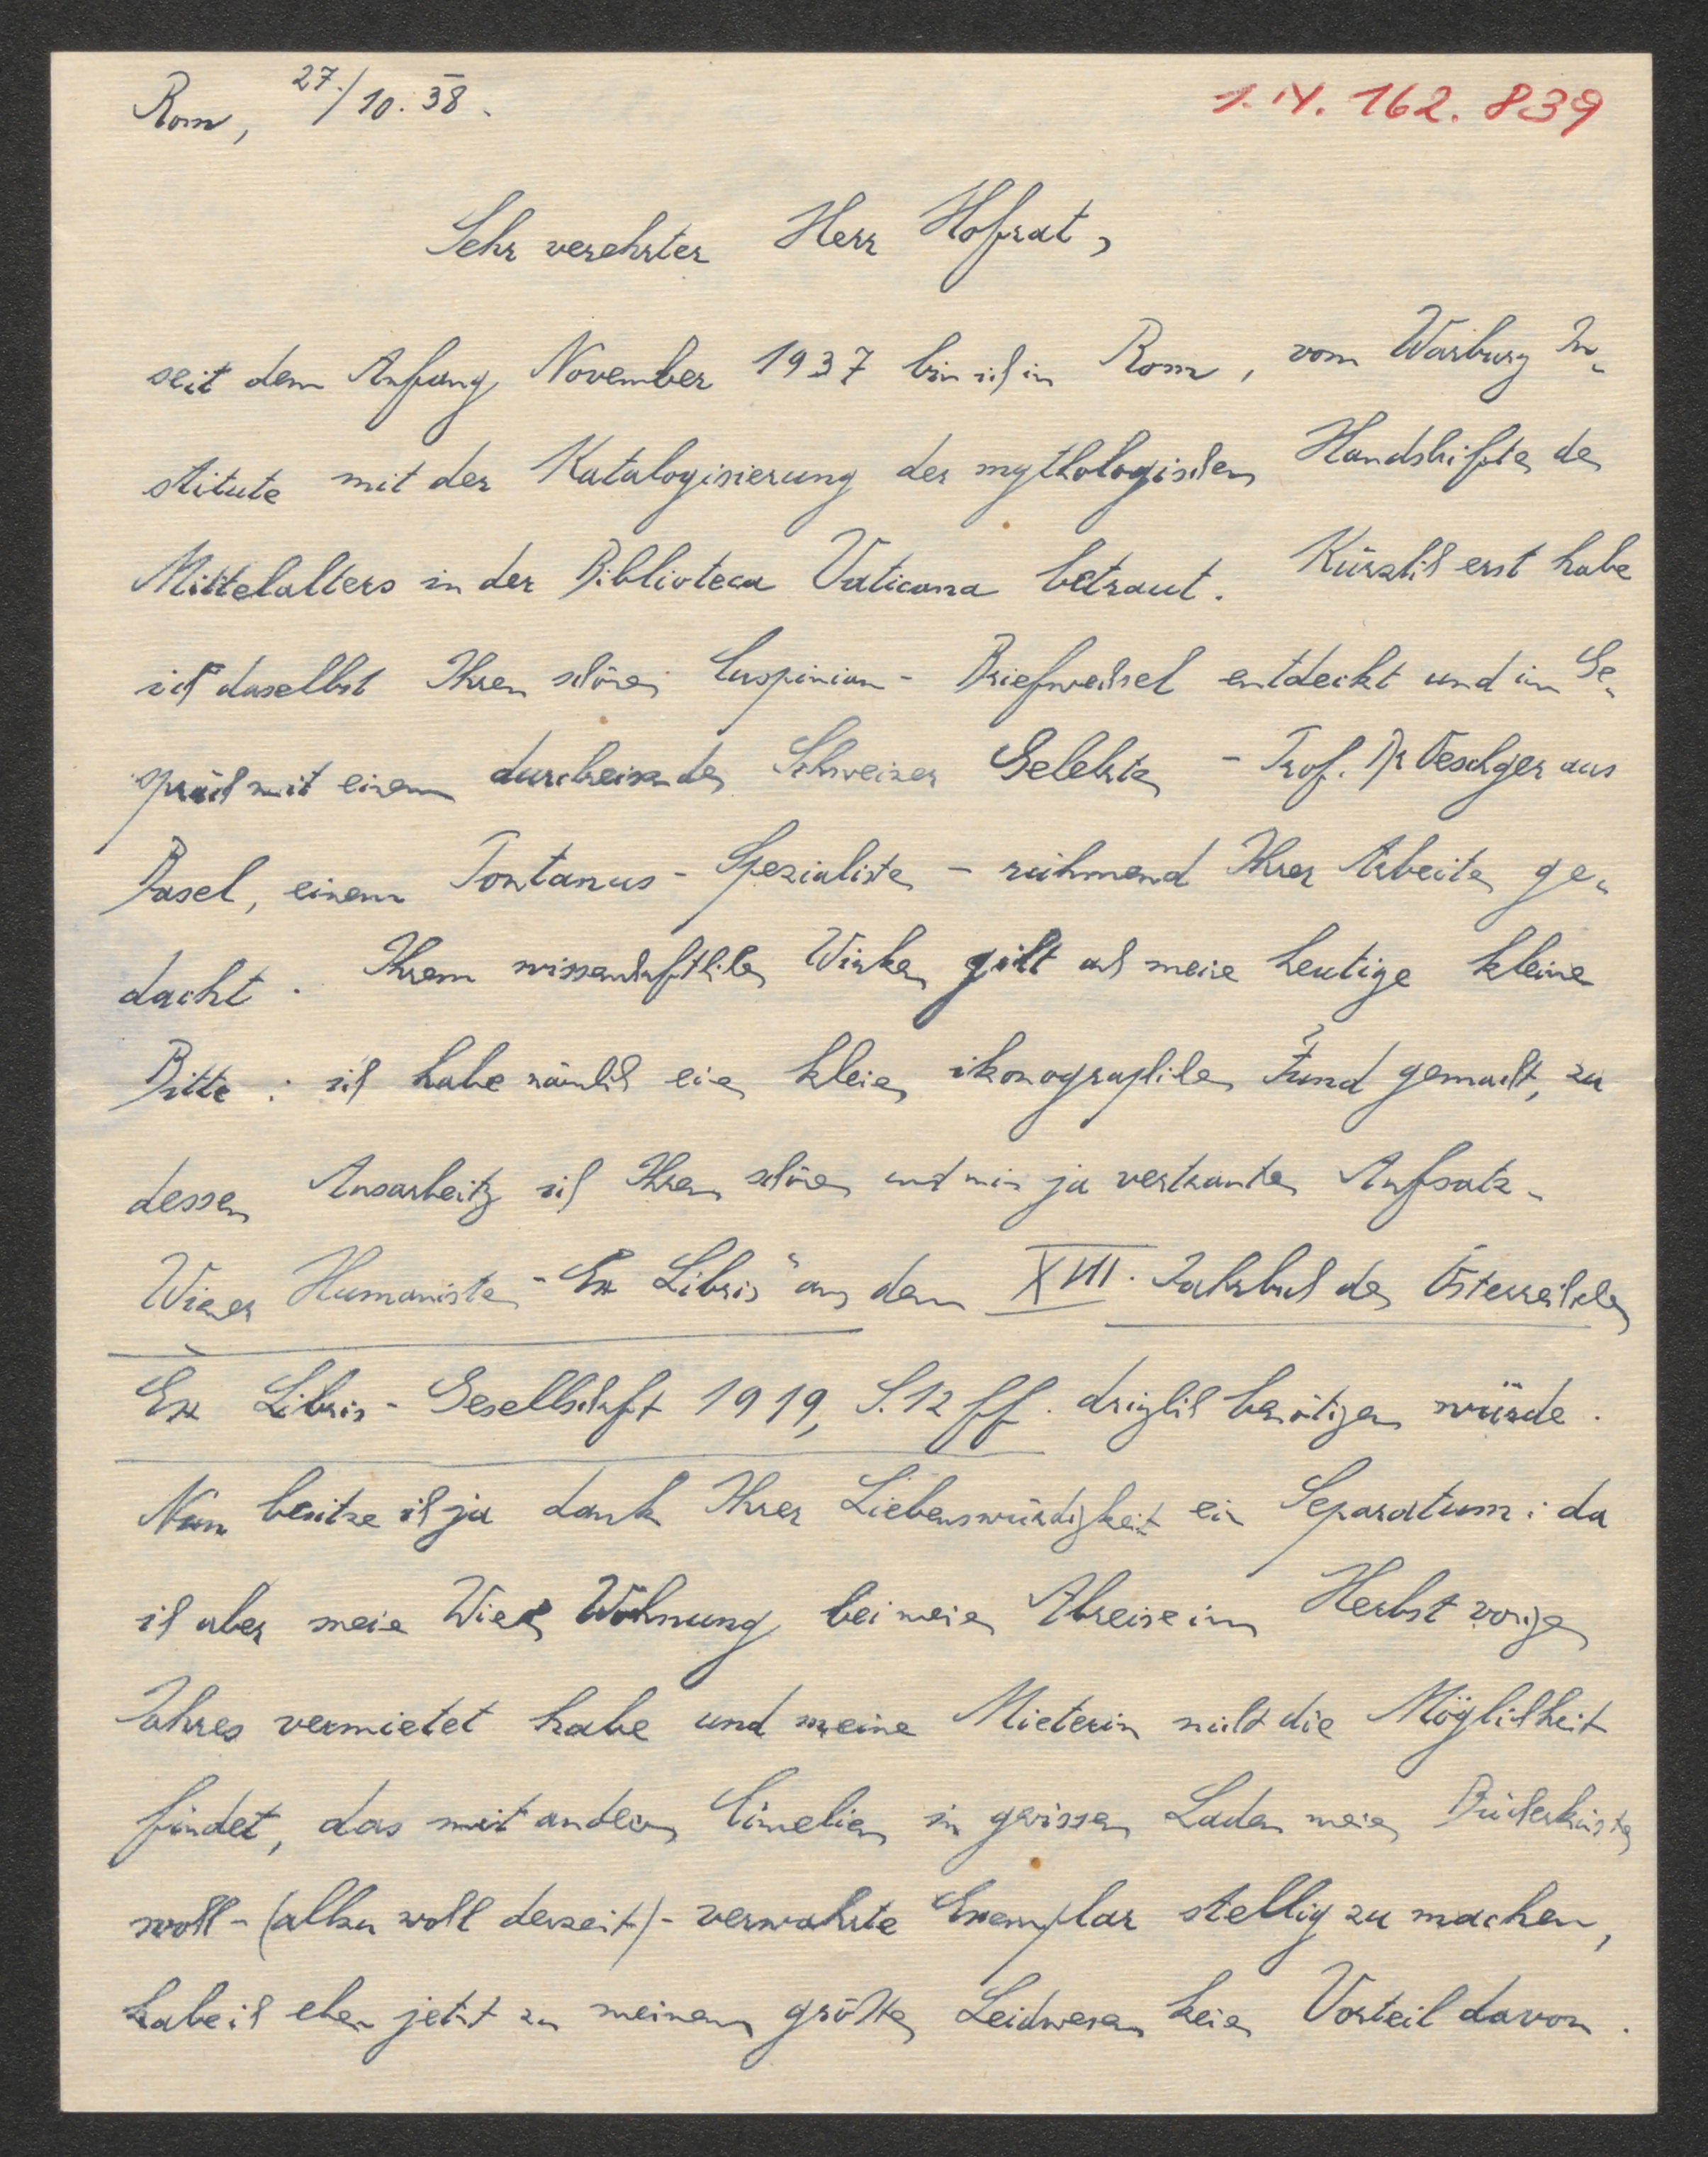 Rom, 27./10. 38.
1. N. 162. 839
Sehr verehrter Herr Hofrat,
seit dem Anfang November 1937 bin ich in Rom, vom Warburg In-
stitute mit der Katalogisierung der mythologischen Handschriften des
Mittelalters in der Biblioteca Vaticana betraut. Kürzlich erst habe
ich daselbst Ihren schönen Cuspinian-Briefwechsel entdeckt und im Ge-
spräch mit einem durchreisenden Schweizer Gelehrten - Prof. Dr Oeschger aus
Basel, einem Pontanus-Spezialisten - rühmend Ihrer Arbeiten ge-
dacht. Ihrem wissenschaftlichen Wirken gilt auch meine heutige kleine
Bitte: ich habe nämlich einen kleinen ikonographischen Fund gemacht, zu
dessen Ausarbeitg ich Ihren schönen und mir ja vertrauten Aufsatz -
Wiener Humanisten-"Ex Libris" aus dem XVII. Jahrbuch der Österreichischen
Ex Libris-Gesellschaft 1919, S. 12 ff. dringlich benötigen würde.
Nun besitze ich ja dank Ihrer Liebenswürdigkeit ein Separatum: da
ich aber meine Wiener Wohnung bei meiner Abreise im Herbst vorigen
Jahres vermietet habe und meine Mieterin nicht die Möglichkeit
findet, das mit anderen Cimelien in gewissen Laden meiner Bücherkästen
wohl - (allzu wohl derzeit) - verwahrte Exemplar stellig zu machen,
habe ich eben jetzt zu meinem größten Leidwesen keinen Vorteil davon.